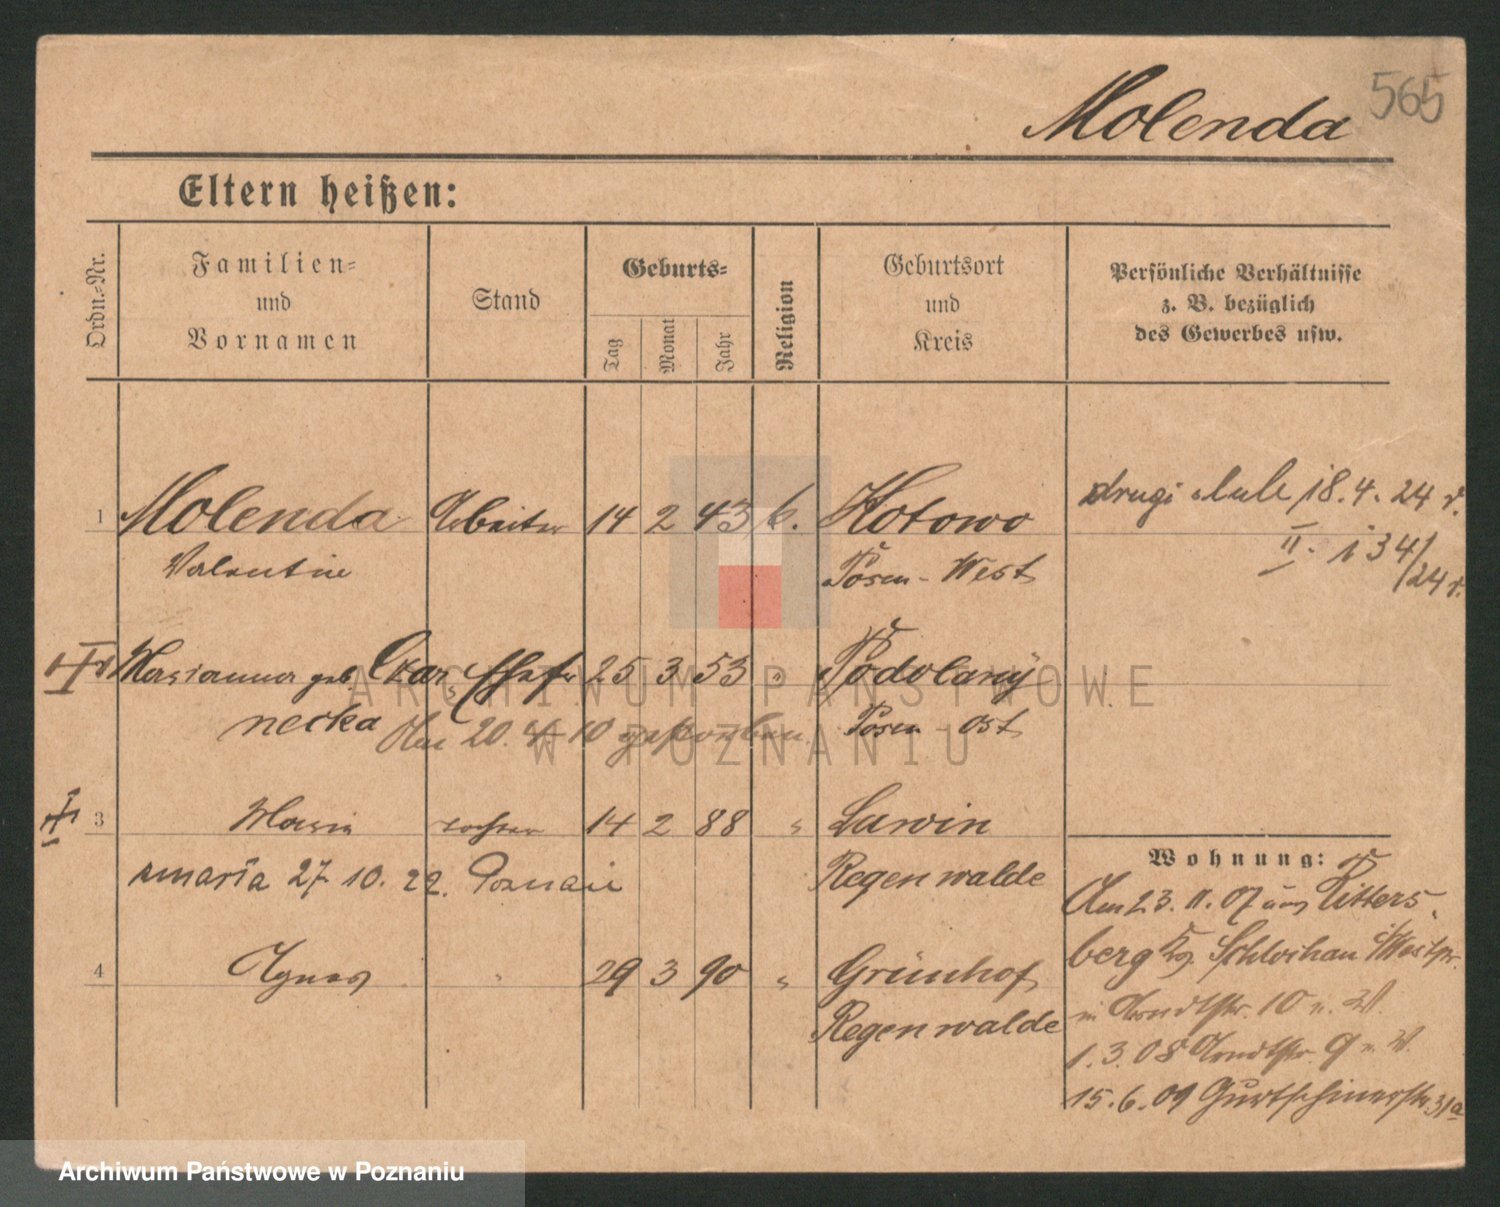 Molenda 565
Eltern heißen:
Ordn.-Nr.
Familien-
und
Vornamen
Stand
Geburts-
Tag
Monat
Jahr
Religion
Geburtsort
und
Kreis
Persönliche Verhältnisse
z. B. bezüglich
des Gewerbes usw.
1 Molenda Arbeiter 14 2 43 k. Kotowo
Valentin Posen-West
drugi 18.4.24 r.
II. 134/24 r.
Marianna geb. Czar- 25 3 53 " Podolany
necka Am 20. 4. 10 gestorben Posen-Ost
3 Maria Tochter 14 2 88 " Larvin
zmarła 27.10.22. Poznań Regenwalde
4 Agnes " 29 3 90 " Grünhof
Regenwalde
Wohnung:
Am 23.11.07 aus Ritters-
berg Kr. Schlochau Westpr.
in Arndtstr. 10 n. W.
1.3.08 Arndtstr. 9 n. W.
15.6.09 Gurtschinerstr. 31a
ARCHIWUM PAŃSTWOWE
W POZNANIU
Archiwum Państwowe w Poznaniu